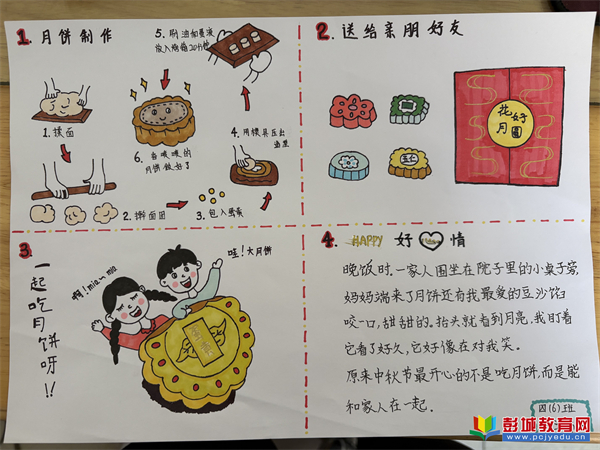 1. 月饼制作
5. 刷油和蛋液
放入烤箱20分钟
1. 揉面
6. 香喷喷的
月饼做好了
4. 用模具压出
2. 擀面团
3. 包入馅
2. 送给亲朋好友
花好
月圆
五仁
3.
一起吃月饼呀!!
啊!mia~mia
哇!大月饼
4. HAPPY 好 情
晚饭时,一家人围坐在院子里的小桌子旁,
妈妈端来了月饼还有我最爱的豆沙馅
咬一口,甜甜的。抬头就看到月亮,我盯着
它看了好久,它好像在对我笑。
原来中秋节最开心的不是吃月饼,而是能
和家人在一起。
四(6)班
彭城教育网
www.pcjyedu.cn